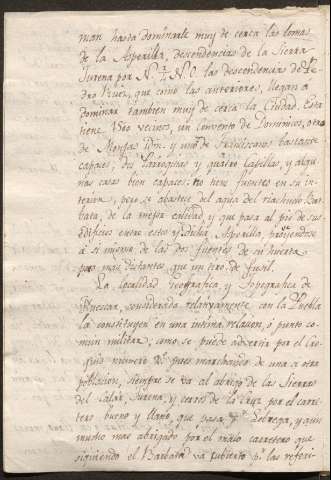 man hasta dominarle muy de cerca las lomas
de la Asperilla, descendencias de la Sierra
Jurena por N. ¼ N.O. las descendencias de Pe
dro Ruiz, que como las anteriores, llegan a
dominar tambien muy de cerca la Ciudad. Esta
tiene 1500 vecinos, un Convento de Dominicos, otro
de Monjas idm. y uno de Franciscanos bastante
capaces, dos Parroquias y quatro Capillas, y algu
nas casas bien capaces: no tiene fuentes en su in
terior, pero se abastece del agua del riachuelo Bar
bata, de la mejor calidad y que pasa al pie de sus
edificios entre estos y dicha Asperilla, proveiendose
a si misma de las dos fuentes de su huerta
mas distantes que un tiro de fusil.
La localidad Geografica y Topografica de
Huescar, considerada relativamente con la Puebla
la constituyen en una intima relacion, y punto co
mun militar; como se puede advertir por el cro
quis numero pues marchando de una a otra
poblacion, siempre se va al abrigo de las Sierras
del Calar, Jurena, y cerros de la Cruz por el carre
tero bueno y llano, que pasa pr. Estrega, y aun
mucho mas abrigado por el malo carretero que
siguiendo el Barbata va cubierto pr. las referi-